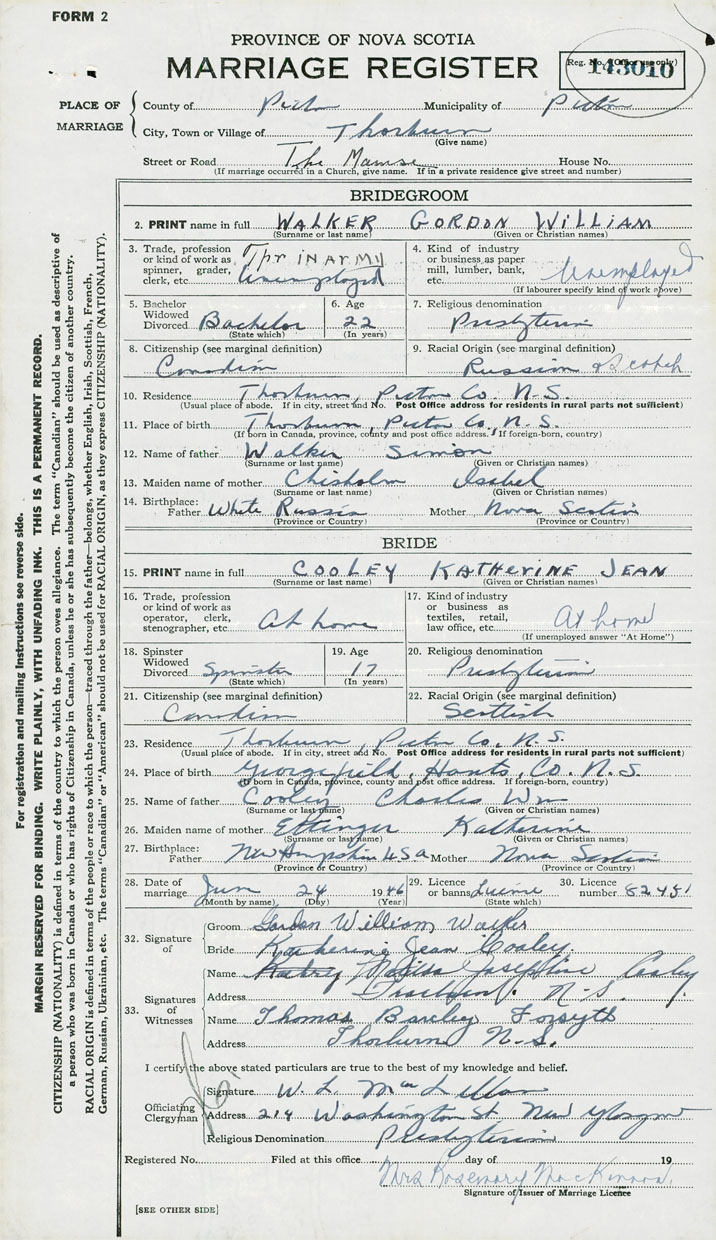 FORM 2
PROVINCE OF NOVA SCOTIA
MARRIAGE REGISTER
Reg. No. (Office use only)
143010
PLACE OF MARRIAGE
County of Pictou Municipality of Pictou
City, Town or Village of Thorburn
(Give name)
Street or Road The Manse House No.
(If marriage occurred in a Church, give name. If in a private residence give street and number)
BRIDEGROOM
2. PRINT name in full WALKER GORDON WILLIAM
(Surname or last name) (Given or Christian names)
3. Trade, profession or kind of work as spinner, grader, clerk, etc. Tpr IN ARMY Unemployed
4. Kind of industry or business as paper mill, lumber, bank, etc. Unemployed
(If labourer specify kind of work above)
5. Bachelor Widowed Divorced Bachelor
(State which)
6. Age 22
(In years)
7. Religious denomination Presbyterian
8. Citizenship (see marginal definition) Canadian
9. Racial Origin (see marginal definition) Russian & Scotch
10. Residence Thorburn, Pictou Co. N.S.
(Usual place of abode. If in city, street and No. Post Office address for residents in rural parts not sufficient)
11. Place of birth Thorburn, Pictou Co., N.S.
(If born in Canada, province, county and post office address. If foreign-born, country)
12. Name of father Walker Simon
(Surname or last name) (Given or Christian names)
13. Maiden name of mother Chisholm Isabel
(Surname or last name) (Given or Christian names)
14. Birthplace: Father White Russia Mother Nova Scotia
(Province or Country) (Province or Country)
BRIDE
15. PRINT name in full COOLEY KATHERINE JEAN
(Surname or last name) (Given or Christian names)
16. Trade, profession or kind of work as operator, clerk, stenographer, etc. At home
17. Kind of industry or business as textiles, retail, law office, etc. At home
(If unemployed answer "At Home")
18. Spinster Widowed Divorced Spinster
(State which)
19. Age 17
(In years)
20. Religious denomination Presbyterian
21. Citizenship (see marginal definition) Canadian
22. Racial Origin (see marginal definition) Scottish
23. Residence Thorburn, Pictou Co., N.S.
(Usual place of abode. If in city, street and No. Post Office address for residents in rural parts not sufficient)
24. Place of birth Georgefield, Hants, Co. N.S.
(If born in Canada, province, county and post office address. If foreign-born, country)
25. Name of father Cooley Charles Wm
(Surname or last name) (Given or Christian names)
26. Maiden name of mother Ettinger Katherine
(Surname or last name) (Given or Christian names)
27. Birthplace: Father New Hampshire USA Mother Nova Scotia
(Province or Country) (Province or Country)
28. Date of marriage June 24 1946
(Month by name) (Day) (Year)
29. Licence or banns License
(State which)
30. Licence number 82481
32. Signature of
Groom Gordon William Walker
Bride Katherine Jean Cooley
33. Signatures of Witnesses
Name Josephine Cooley
Address N-S.
Name Thomas Forsyth
Address Thorburn N-S.
I certify the above stated particulars are true to the best of my knowledge and belief.
Officiating Clergyman
Signature W. L. McLellan
Address 214 Washington St New Glasgow
Religious Denomination Presbyterian
Registered No. Filed at this office day of 19
Mrs Rosemary MacKinnon
Signature of Issuer of Marriage Licence
[SEE OTHER SIDE]
For registration and mailing instructions see reverse side.
MARGIN RESERVED FOR BINDING. WRITE PLAINLY, WITH UNFADING INK. THIS IS A PERMANENT RECORD.
CITIZENSHIP (NATIONALITY) is defined in terms of the country to which the person owes allegiance. The term "Canadian" should be used as descriptive of
a person who was born in Canada or who has rights of Citizenship in Canada, unless he or she has subsequently become the citizen of another country.
RACIAL ORIGIN is defined in terms of the people or race to which the person—traced through the father—belongs, whether English, Irish, Scottish, French,
German, Russian, Ukrainian, etc. The terms "Canadian" or "American" should not be used for RACIAL ORIGIN, as they express CITIZENSHIP (NATIONALITY).